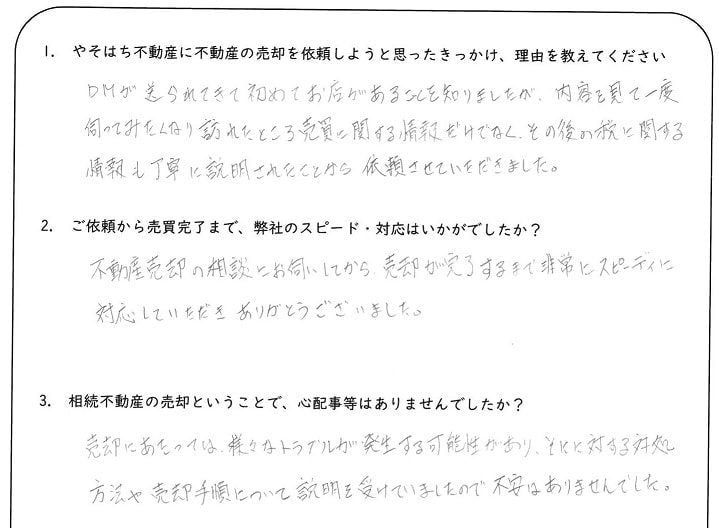 1. やそはち不動産に不動産の売却を依頼しようと思ったきっかけ、理由を教えてください
DMが送られてきて初めてお店があることを知りましたが、内容を見て一度
伺ってみたくなり訪れたところ売買に関する情報だけでなく、その後の税に関する
情報も丁寧に説明されたことから依頼させていただきました。
2. ご依頼から売買完了まで、弊社のスピード・対応はいかがでしたか？
不動産売却の相談にお伺いしてから、売却が完了するまで非常にスピーディに
対応していただきありがとうございました。
3. 相続不動産の売却ということで、心配事等はありませんでしたか？
売却にあたっては、様々なトラブルが発生する可能性があり、それに対する対処
方法や売却手順について説明を受けていましたので不安はありませんでした。